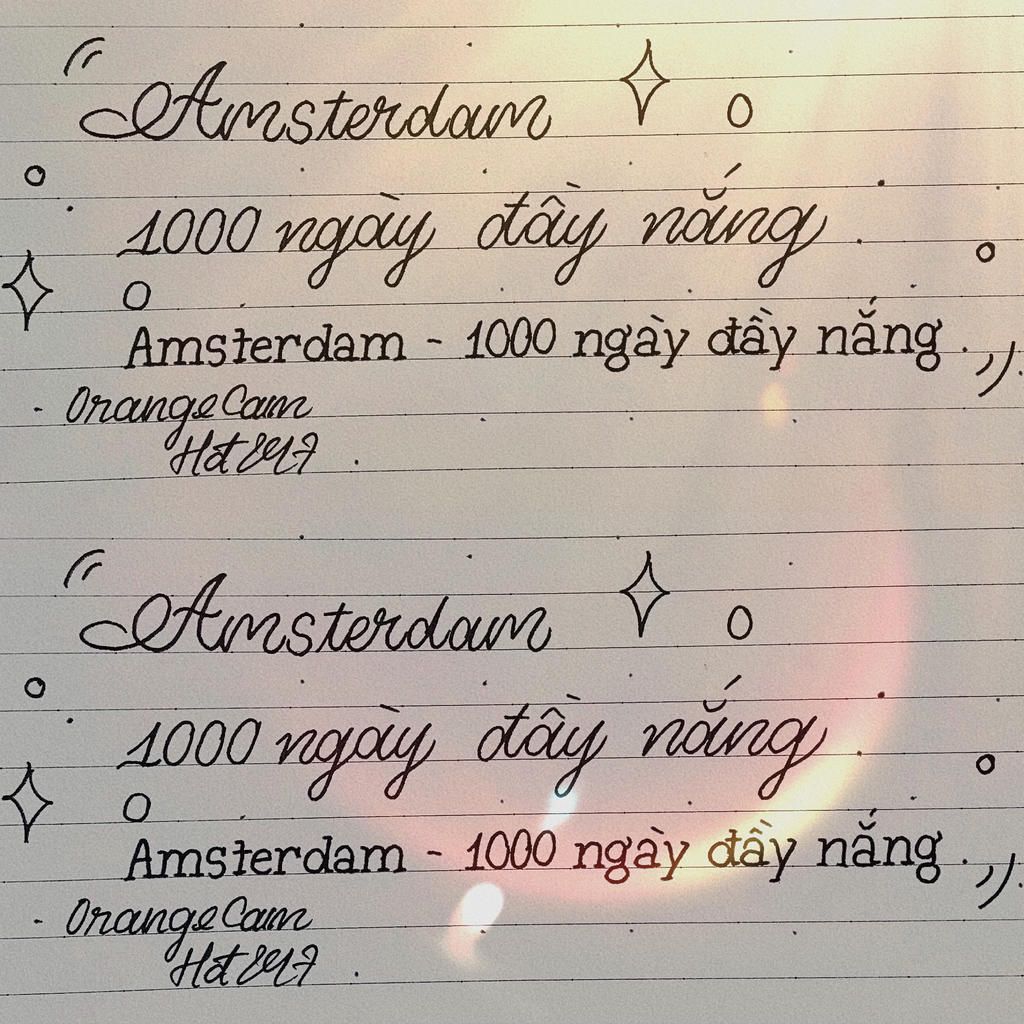 "Amsterdam
1000 ngày đầy nắng.
Amsterdam - 1000 ngày đầy nắng."
- OrangeCam
"Amsterdam
1000 ngày đầy nắng.
Amsterdam - 1000 ngày đầy nắng."
- OrangeCam